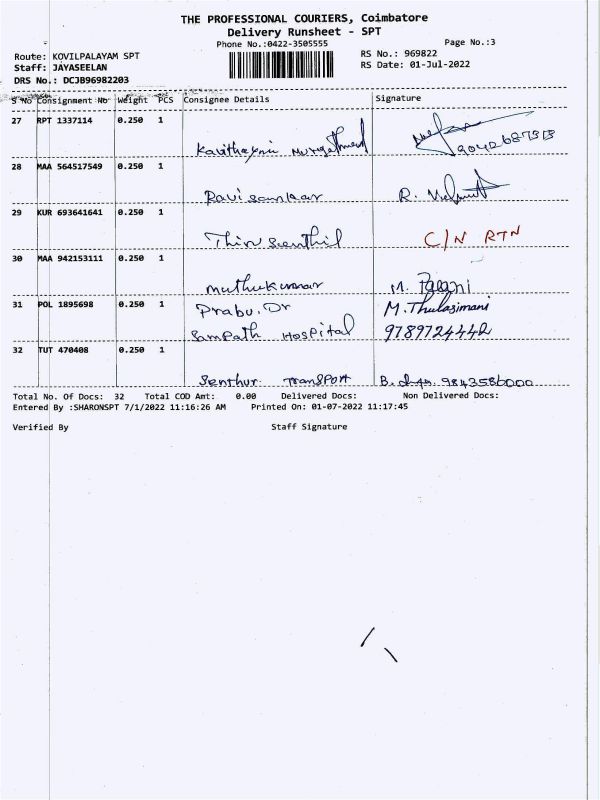 THE PROFESSIONAL COURIERS, Coimbatore
Delivery Runsheet - SPT
Phone No.:0422-3505555
Page No.:3
Route: KOVILPALAYAM SPT
RS No.: 969822
Staff: JAYASEELAN
RS Date: 01-Jul-2022
DRS No.: DCJB96982203
S No Consignment No Weight PCS Consignee Details Signature
27 RPT 1337114 0.250 1
28 MAA 564517549 0.250 1
Ravi sankar R.
29 KUR 693641641 0.250 1
Thiru Senthil C/N RTN
30 MAA 942153111 0.250 1
muthukumar M. Palani
31 POL 1895698 0.250 1 Prabu. Dr M. Thulasimani
Sampath Hospital 9789724442
32 TUT 470408 0.250 1
Senthur Transport B. 9843586000
Total No. Of Docs: 32 Total COD Amt: 0.00 Delivered Docs: Non Delivered Docs:
Entered By :SHARONSPT 7/1/2022 11:16:26 AM Printed On: 01-07-2022 11:17:45
Verified By Staff Signature